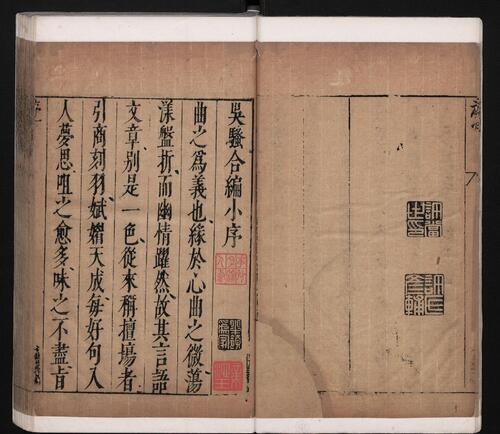 吳騷合編小序
曲之爲義也緣於心曲之微蕩
漾盤折而幽情躍然故其言語
文章別是一色從來稱擅塲者
引商刻羽斌媚天成每好句入
人夢思咀之愈多味之不盡旨